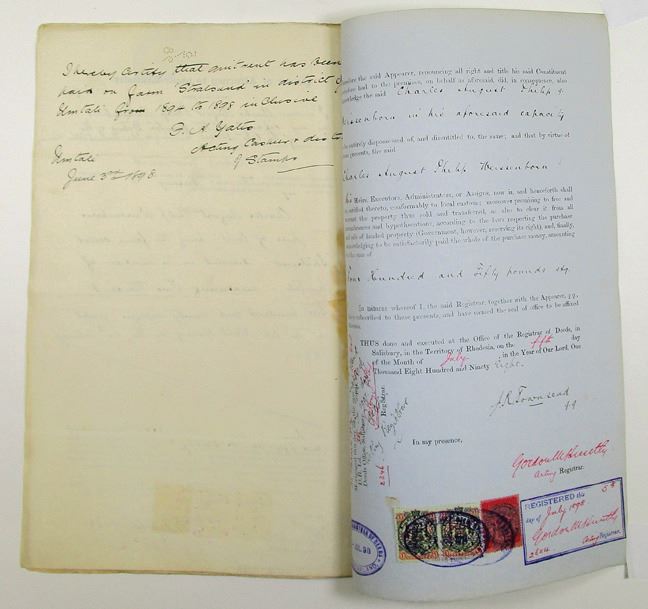 I hereby certify that quitrent has been
paid on farm Stralsund in district of
Umtali from 1894 to 1898 inclusive
Acting Cashier & dist
of Stamps
Umtali
June 3rd 1898
the said Appearer, renouncing all right and title his said Constituent
had to the premises, on behalf as aforesaid, did, in consequence, also
the said Charles August Philip
Weissenborn in his aforesaid capacity
entirely dispossessed of, and disentitled to, the same; and that by virtue of
presents, the said
Charles August Philip Weissenborn
his Heirs, Executors, Administrators, or Assigns, now is, and henceforth shall
entitled thereto, conformably to local custom; moreover promising to free and
warrant the property thus sold and transferred, as also to clear it from all
encumbrances and hypothecations, according to the laws respecting the purchase
and sale of landed property (Government, however, reserving its right), and, finally,
acknowledging to be satisfactorily paid the whole of the purchase money, amounting
to the sum of
Four Hundred and Fifty pounds stg.
In witness whereof I, the said Registrar, together with the Appearer, q.q.
have subscribed to these presents, and have caused the seal of office to be affixed
thereto.
THUS done and executed at the Office of the Registrar of Deeds, in
Salisbury, in the Territory of Rhodesia, on the fifth day
of the Month of July, in the Year of Our Lord One
Thousand Eight Hundred and Ninety eight.
J.R. Townsend
q.q.
In my presence,
Acting Registrar.
Registrar.
REGISTERED this 5th
day of July 1898
Acting Registrar.